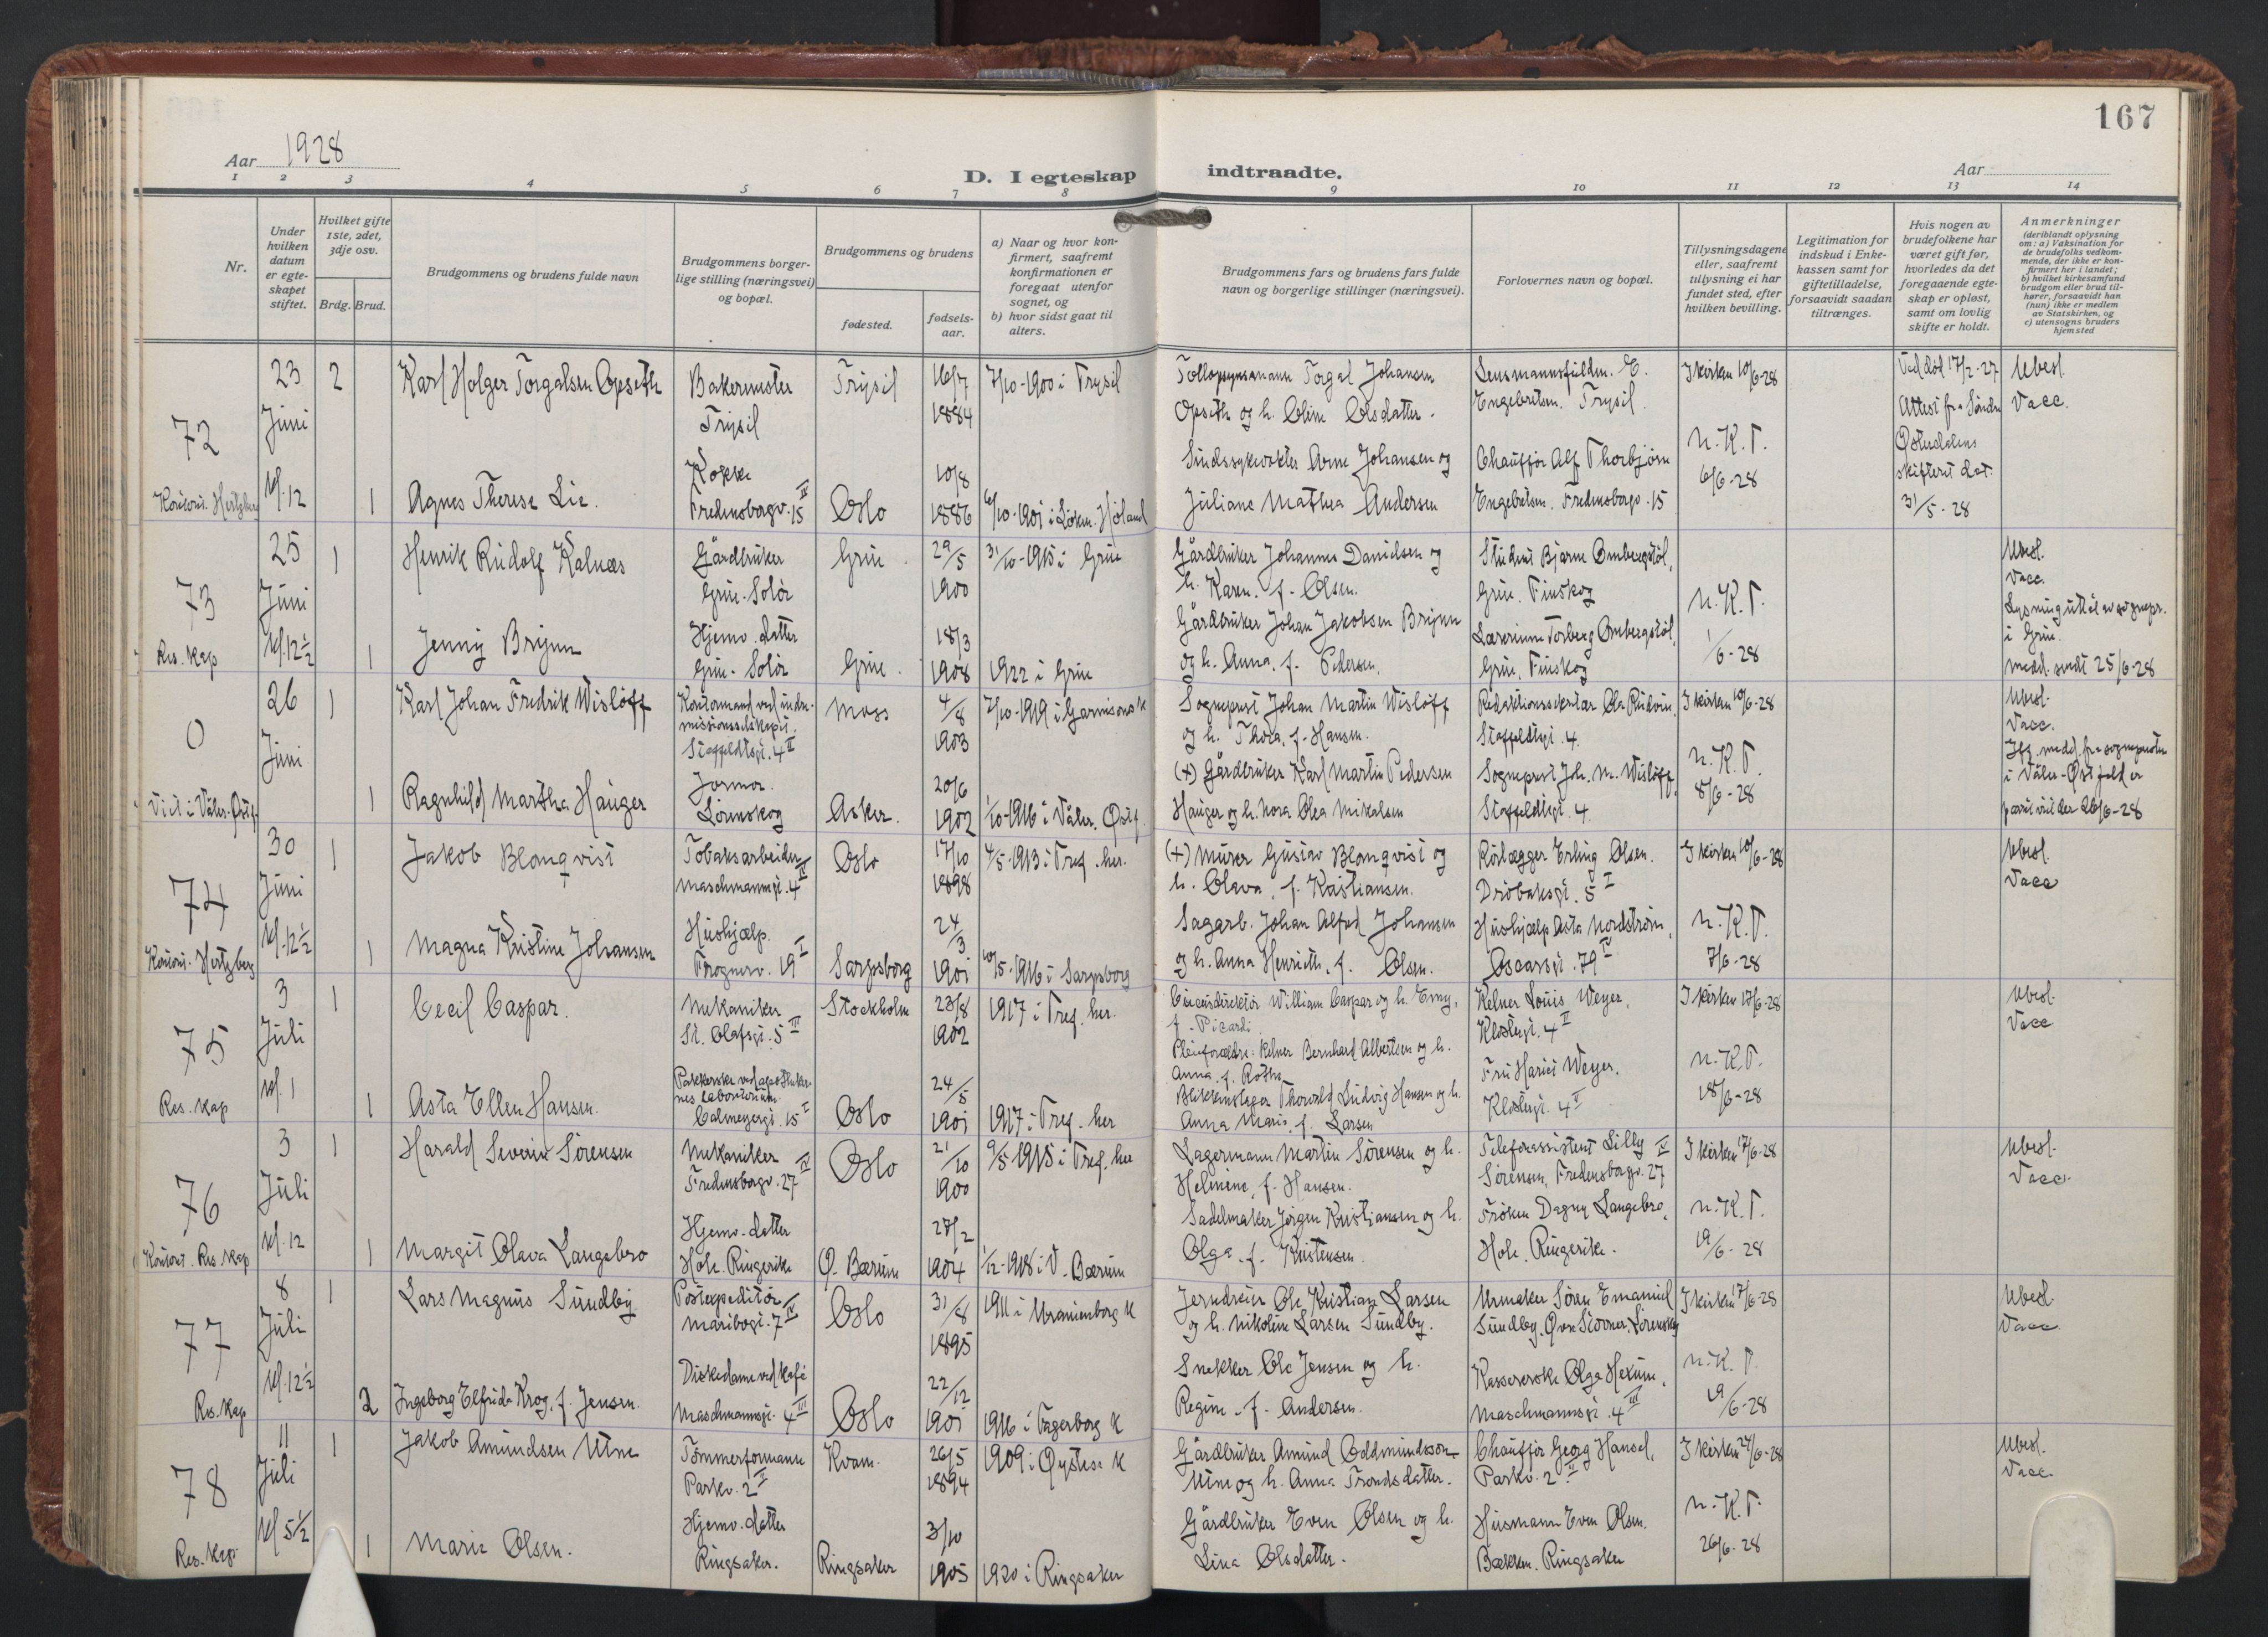 167
Aar 1928
D. I egteskap indtraadte.
Aar
1 2 3 4 5 6 7 8 9 10 11 12 13 14
Nr.
Under hvilken datum er egteskapet stiftet.
Hvilket gifte 1ste, 2det, 3dje osv.
Brdg. Brud.
Brudgommens og brudens fulde navn
Brudgommens borgerlige stilling (næringsvei) og bopæl.
Brudgommens og brudens
fødested.
fødselsaar.
a) Naar og hvor konfirmert, saafremt konfirmationen er foregaat utenfor sognet, og
b) hvor sidst gaat til alters.
Brudgommens fars og brudens fars fulde navn og borgerlige stillinger (næringsvei).
Forlovernes navn og bopæl.
Tillysningsdagene eller, saafremt tillysning ei har fundet sted, efter hvilken bevilling.
Legitimation for indskud i Enkekassen samt for giftetilladelse, forsaavidt saadan tiltrænges.
Hvis nogen av brudefolkene har været gift før, hvorledes da det foregaaende egteskap er opløst, samt om lovlig skifte er holdt.
Anmerkninger
(deriblandt oplysning om: a) Vaksination for de brudefolks vedkommende, der ikke er konfirmert her i landet;
b) hvilket kirkesamfund brudgom eller brud tilhører, forsaavidt han (hun) ikke er medlem av Statskirken, og
c) utensogns bruders hjemsted
72
23 Juni kl. 12
2 Karl Holger Torgalsen Opseth
Bakermester Trysil
Trysil
16/7 1884
7/10-1900 i Trysil
Tollopsynsmann Torgal Johansen
Opseth og h. Oline Olsdatter.
Lensmannsfuldm. E.
Engebretsen. Trysil.
I kirken 10/6-28
Ved død 17/2-27
Attest fra Søndre
Østerdalens
skifterett dat.
31/5-28
Ubesl.
Vacc.
1 Agnes Therese Lie.
Kokke
Fredensborgv. 15 IV
Oslo
10/8 1886
6/10-1901 i Løken. Høland
Sindssykevokter Arne Johansen og
Juliane Mathea Andersen
Chauffør Alf Thorbjørn
Engebretsen. Fredensborgv. 15
N.K.T.
6/6-28
73
Res. kap
25 Juni kl. 12½
1 Henrik Rudolf Kalnæs
Gårdbruker
Grue-Solør
Grue.
29/5 1900
31/10-1915 i Grue
Gårdbruker Johannes Danielsen og
h. Karen. f. Olsen.
Student Bjarne Ombergstøl,
Grue. Finskog
N.K.T.
1/6-28
Ubesl.
Vacc.
i Grue.
medd. sendt 25/6-28
1 Jenny Brynn
Hjemv. datter
Grue-Solør
Grue.
18/3 1908
1922 i Grue
Gårdbruker Johan Jakobsen Brynn
og h. Anna. f. Pedersen.
Lærerinne Torberg Ombergstøl,
Grue, Finskog
0
Viet i Våler. Østf.
26 Juni
1 Karl Johan Fredrik Wisløff
Kontormand ved indremissionsselskapet.
Stoffeldtsgt. 4 II
Moss
4/8 1903
7/10-1919 i Garnisons k
Sogneprest Johan Martin Wisløff
og h. Thora, f. Hansen.
Redaktionssekretær Ola Rudvin,
Stoffeldtsgt. 4.
I kirken 10/6-28
Ubesl.
Vacc.
Iflg. medd. fra sognepresten
i Våler-Østfold er
paret viet der 26/6-28
1 Ragnhild Martha Hauger
Jormor.
Lørenskog
Asker.
20/6 1902
1/10-1916 i Våler. Østf.
(+) Gårdbruker Karl Martin Pedersen
Hauger og h. Nora Olea Mikalsen
Sogneprest Joh. M. Wisløff,
Stoffeldtsgt. 4.
N.K.T.
8/6-28
74
30 Juni kl. 12½
1 Jakob Blomqvist
Tobaksarbeider
Maschmannsgt. 4 IV
Oslo
17/10 1898
4/5-1913 i Tref. her.
(+) Murer Gustav Blomqvist og
h. Olava, f. Kristiansen.
Rørlægger Erling Olsen.
Drøbaksgt. 5 I
I kirken 10/6-28
Ubesl.
Vacc
1 Magna Kristine Johansen
Hushjælp.
Frognerv. 19 I
Sarpsborg
24/3 1901
10/5-1916 i Sarpsborg
Sagarb. Johan Alfred Johansen
og h. Anna Henriette. f. Olsen.
Hushjælp Asta Nordstrøm,
Oscarsgt. 79 IV
N.K.T.
7/6-28
75
Res. kap
3 Juli kl. 1
1 Cecil Caspar.
Mekaniker
St. Olafsgt. 5 III
Stockholm
23/8 1902
1917 i Tref. her.
Circusdirektør William Caspar og h. Emy,
f. Picardi.
Pleieforældre: Kelner Bernhard Albertsen og h.
Anna. f. Rothe
Kelner Louis Weyer,
Klostergt. 4 II
I kirken 17/6-28
Ubesl.
Vacc
1 Asta Ellen Hansen.
Pakkerske ved apothekernes laboratorium.
Calmeyersgt. 15 I
Oslo
24/5 1901
1917 i Tref. her
Blikkenslager Thorvald Ludvig Hansen og h.
Anna Marie, f. Larsen
Fru Harriet Weyer.
Klostergt. 4 II
N.K.T.
18/6-28
76
3 Juli kl. 12
1 Harald Severin Sørensen
Mekaniker
Fredensborgv. 27 IV
Oslo
21/10 1900
9/5-1915 i Tref. her
Lagermann Martin Sørensen og h.
Helmine, f. Hansen.
Telefonassistent Lilly
Sørensen, Fredensborgv. 27 IV
I kirken 17/6-28
Ubesl.
Vacc.
1 Margit Olava Langebro
Hjemv. datter
Hole. Ringerike
Ø. Bærum
27/2 1904
1/12-1918 i V. Bærum
Sadelmaker Jørgen Kristiansen og h.
Olga. f. Kristensen.
Frøken Dagny Langebro,
Hole. Ringerike.
N.K.T.
19/6-28
77
Res. kap
8 Juli kl. 12½
1 Lars Magnus Sundby
Postexpeditør
Maribogt. 7 IV
Oslo
31/8 1895
1911 i Uranienborg k
Jerndreier Ole Kristian Larsen
og h. Nikoline Larsen Sundby.
Urmaker Søren Emanuel
Sundby.
I kirken 17/6-28
Ubesl.
Vacc
2 Ingeborg Elfrida Krog, f. Jensen.
Diskedame ved kafé
Maschmannsgt. 4 III
Oslo
22/12 1901
1916 i Fagerborg k
Snekker Ole Jensen og h.
Regine. f. Andersen.
Kassererske Olga Hexum,
Maschmannsgt. 4 III
N.K.T.
19/6-28
78
Res. kap.
11 Juli kl 5½
1 Jakob Amundsen Utne
Tømmerformann
Parkv. 2 II
Kvam.
26/5 1894
1909 i Øystese k
Gårdbruker Amund Oddmundsson
Utne og h. Anna Trondsdatter.
Chauffør Georg Hansel,
Parkv. 2 II
I kirken 24/6-28
Ubesl.
Vacc.
1 Marie Olsen.
Hjemv. datter
Ringsaker.
Ringsaker
3/10 1905
1920 i Ringsaker
Gårdbruker Even Olsen og h.
Lina Olsdatter.
Husmann Even Olsen,
Bækken. Ringsaker
N.K.T.
26/6-28